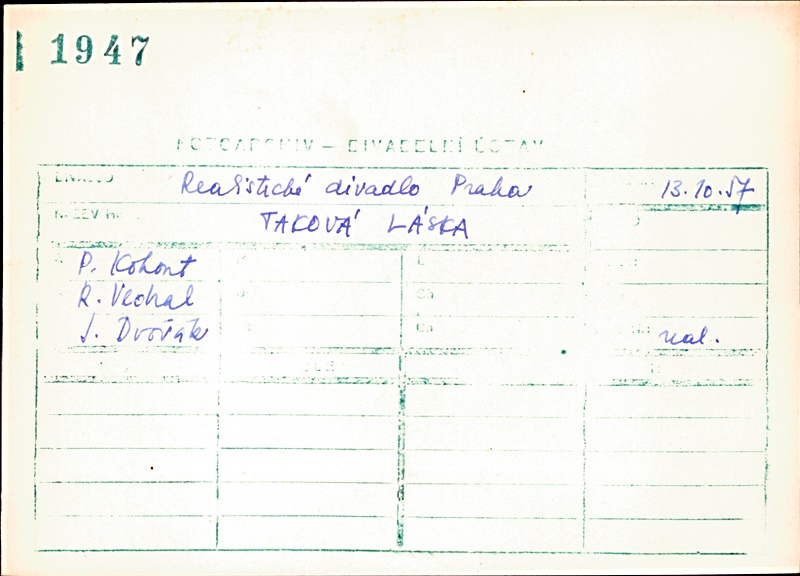 1947
FOTOARCHIV – DIVADELNÍ ÚSTAV
Realistické divadlo Praha 13.10.57
NÁZEV HRY TAKOVÁ LÁSKA
P. Kohout
R. Vedral
J. Dvořák